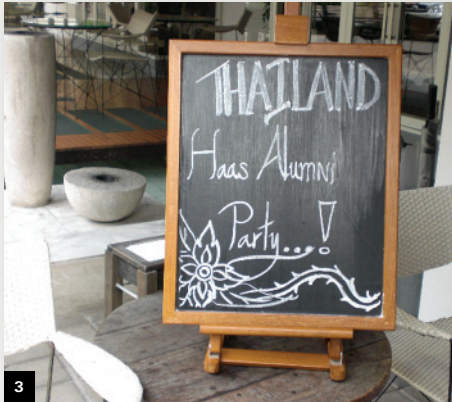 THAILAND
Haas Alumni
Party....!
3